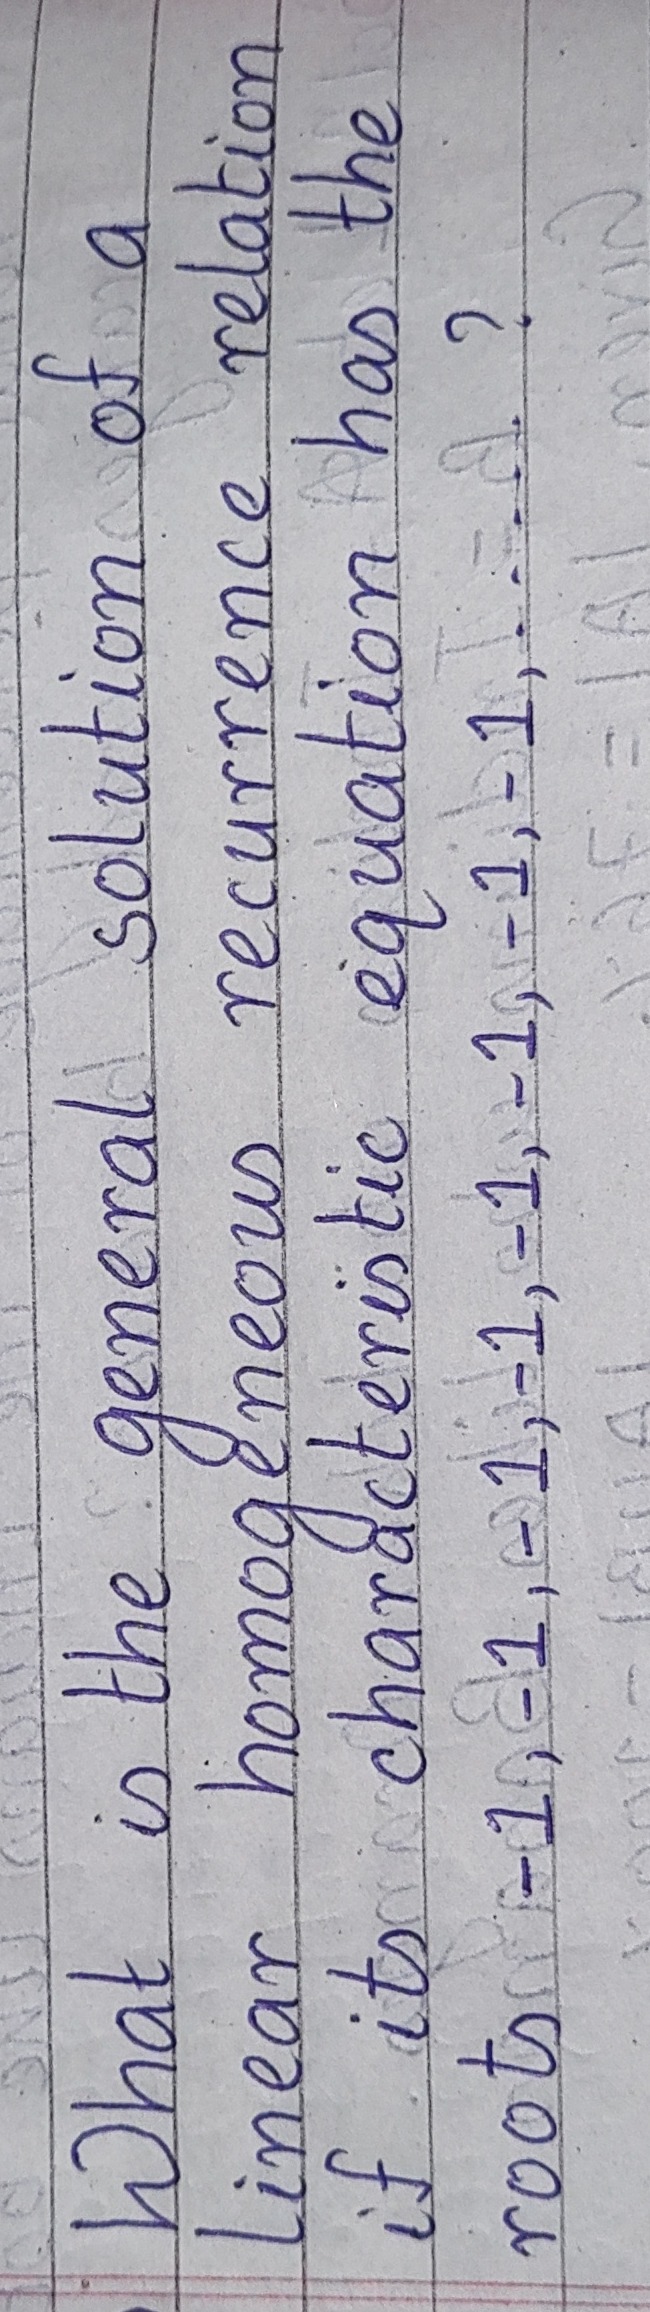 What is the general solution of a
linear homogeneous recurrence relation
if its characteristic equation has the
roots -1, -1, -1, -1, -1, -1, -1, -1, ...... ?